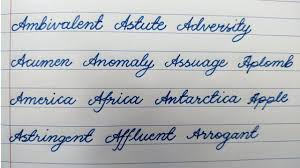 Ambivalent Astute Adversity
Acumen Anomaly Assuage Aplomb
America Africa Antarctica Apple
Astringent Affluent Arrogant